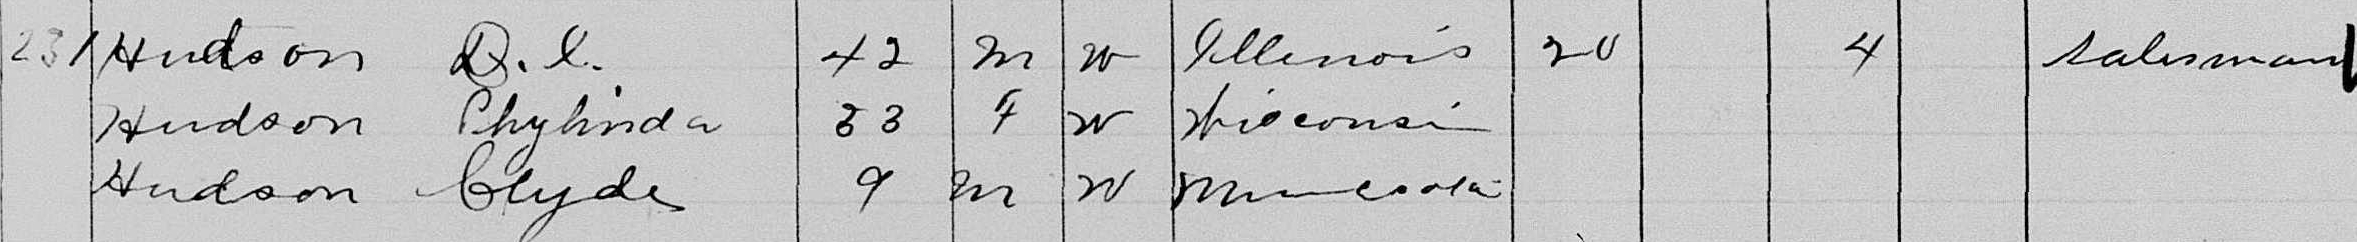 231 Hudson D. L. 42 M W Illinois 20 4 Salesman
Hudson Phylinda 33 F W Wisconsin
Hudson Clyde 9 M W Minnesota